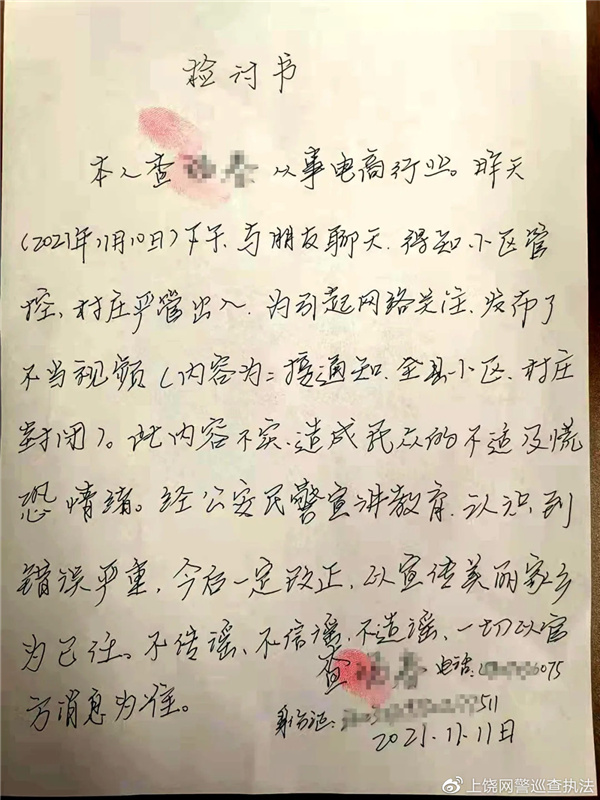 检讨书
本人查 从事电商行业。昨天
(2021年11月10日)下午、与朋友聊天、得知、小区管
控、村庄严管出入、为引起网络关注、发布了
不当视频(内容为:接通知、全县小区、村庄
封闭)。此内容不实、造成民众的不适及慌
恐情绪。经公安民警宣讲教育、认识到
错误严重,今后一定改正、以宣传美丽家乡
为己任。不传谣、不信谣、不造谣、一切以官
方消息为准。
查 电话: 075
身份证: 511
2021.11.11日
上饶网警巡查执法